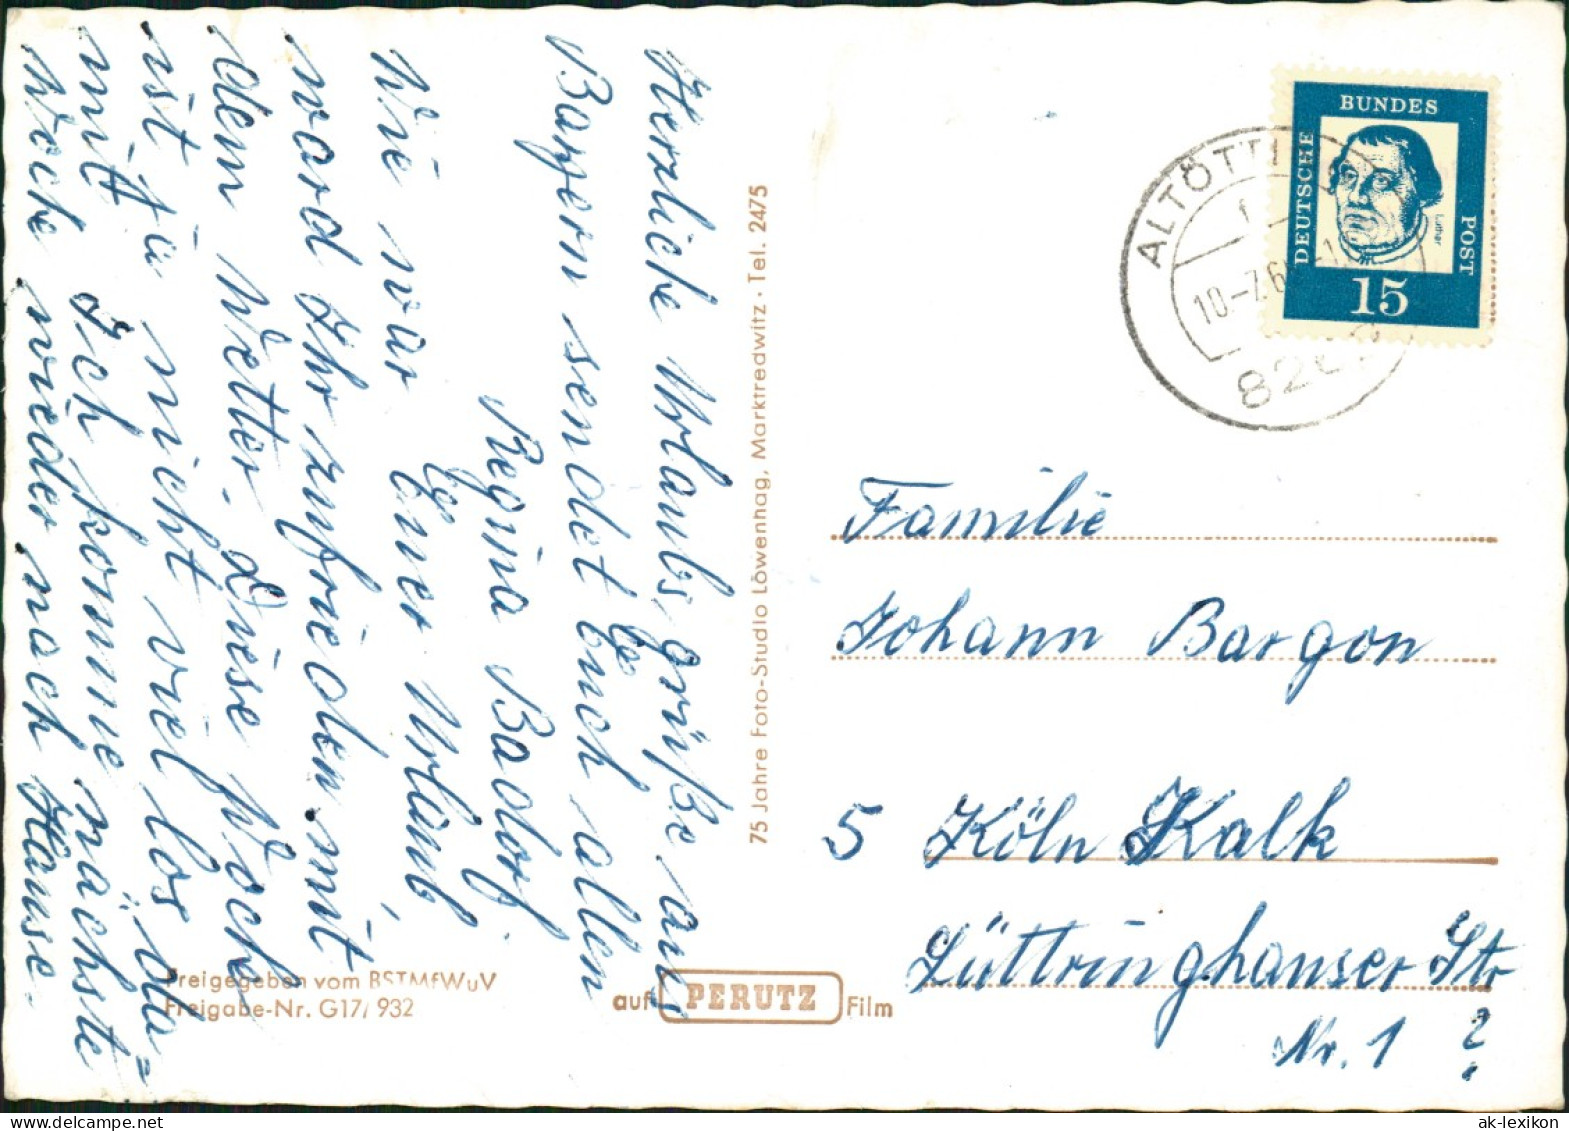 Herzliche Urlaubsgrüße aus
Bayern sendet Euch allen
Regina Badorf.
Wie war Euer Urlaub,
ward Ihr zufrieden mit
dem Wetter. Diese Woche
ist ja nicht viel los da=
mit. Ich komme nächste
Woche wieder nach Hause.
75 Jahre Foto-Studio Löwenhag, Marktredwitz · Tel. 2475
Freigegeben vom BSTMfWuV
Freigabe-Nr. G17/932
auf PERUTZ Film
DEUTSCHE BUNDES POST
Luther
15
ALTÖTTING
10.-7.6
Familie
Johann Bargon
5 Köln Kalk
Lüttringhauser Str
Nr. 1 ?
ak-lexikon